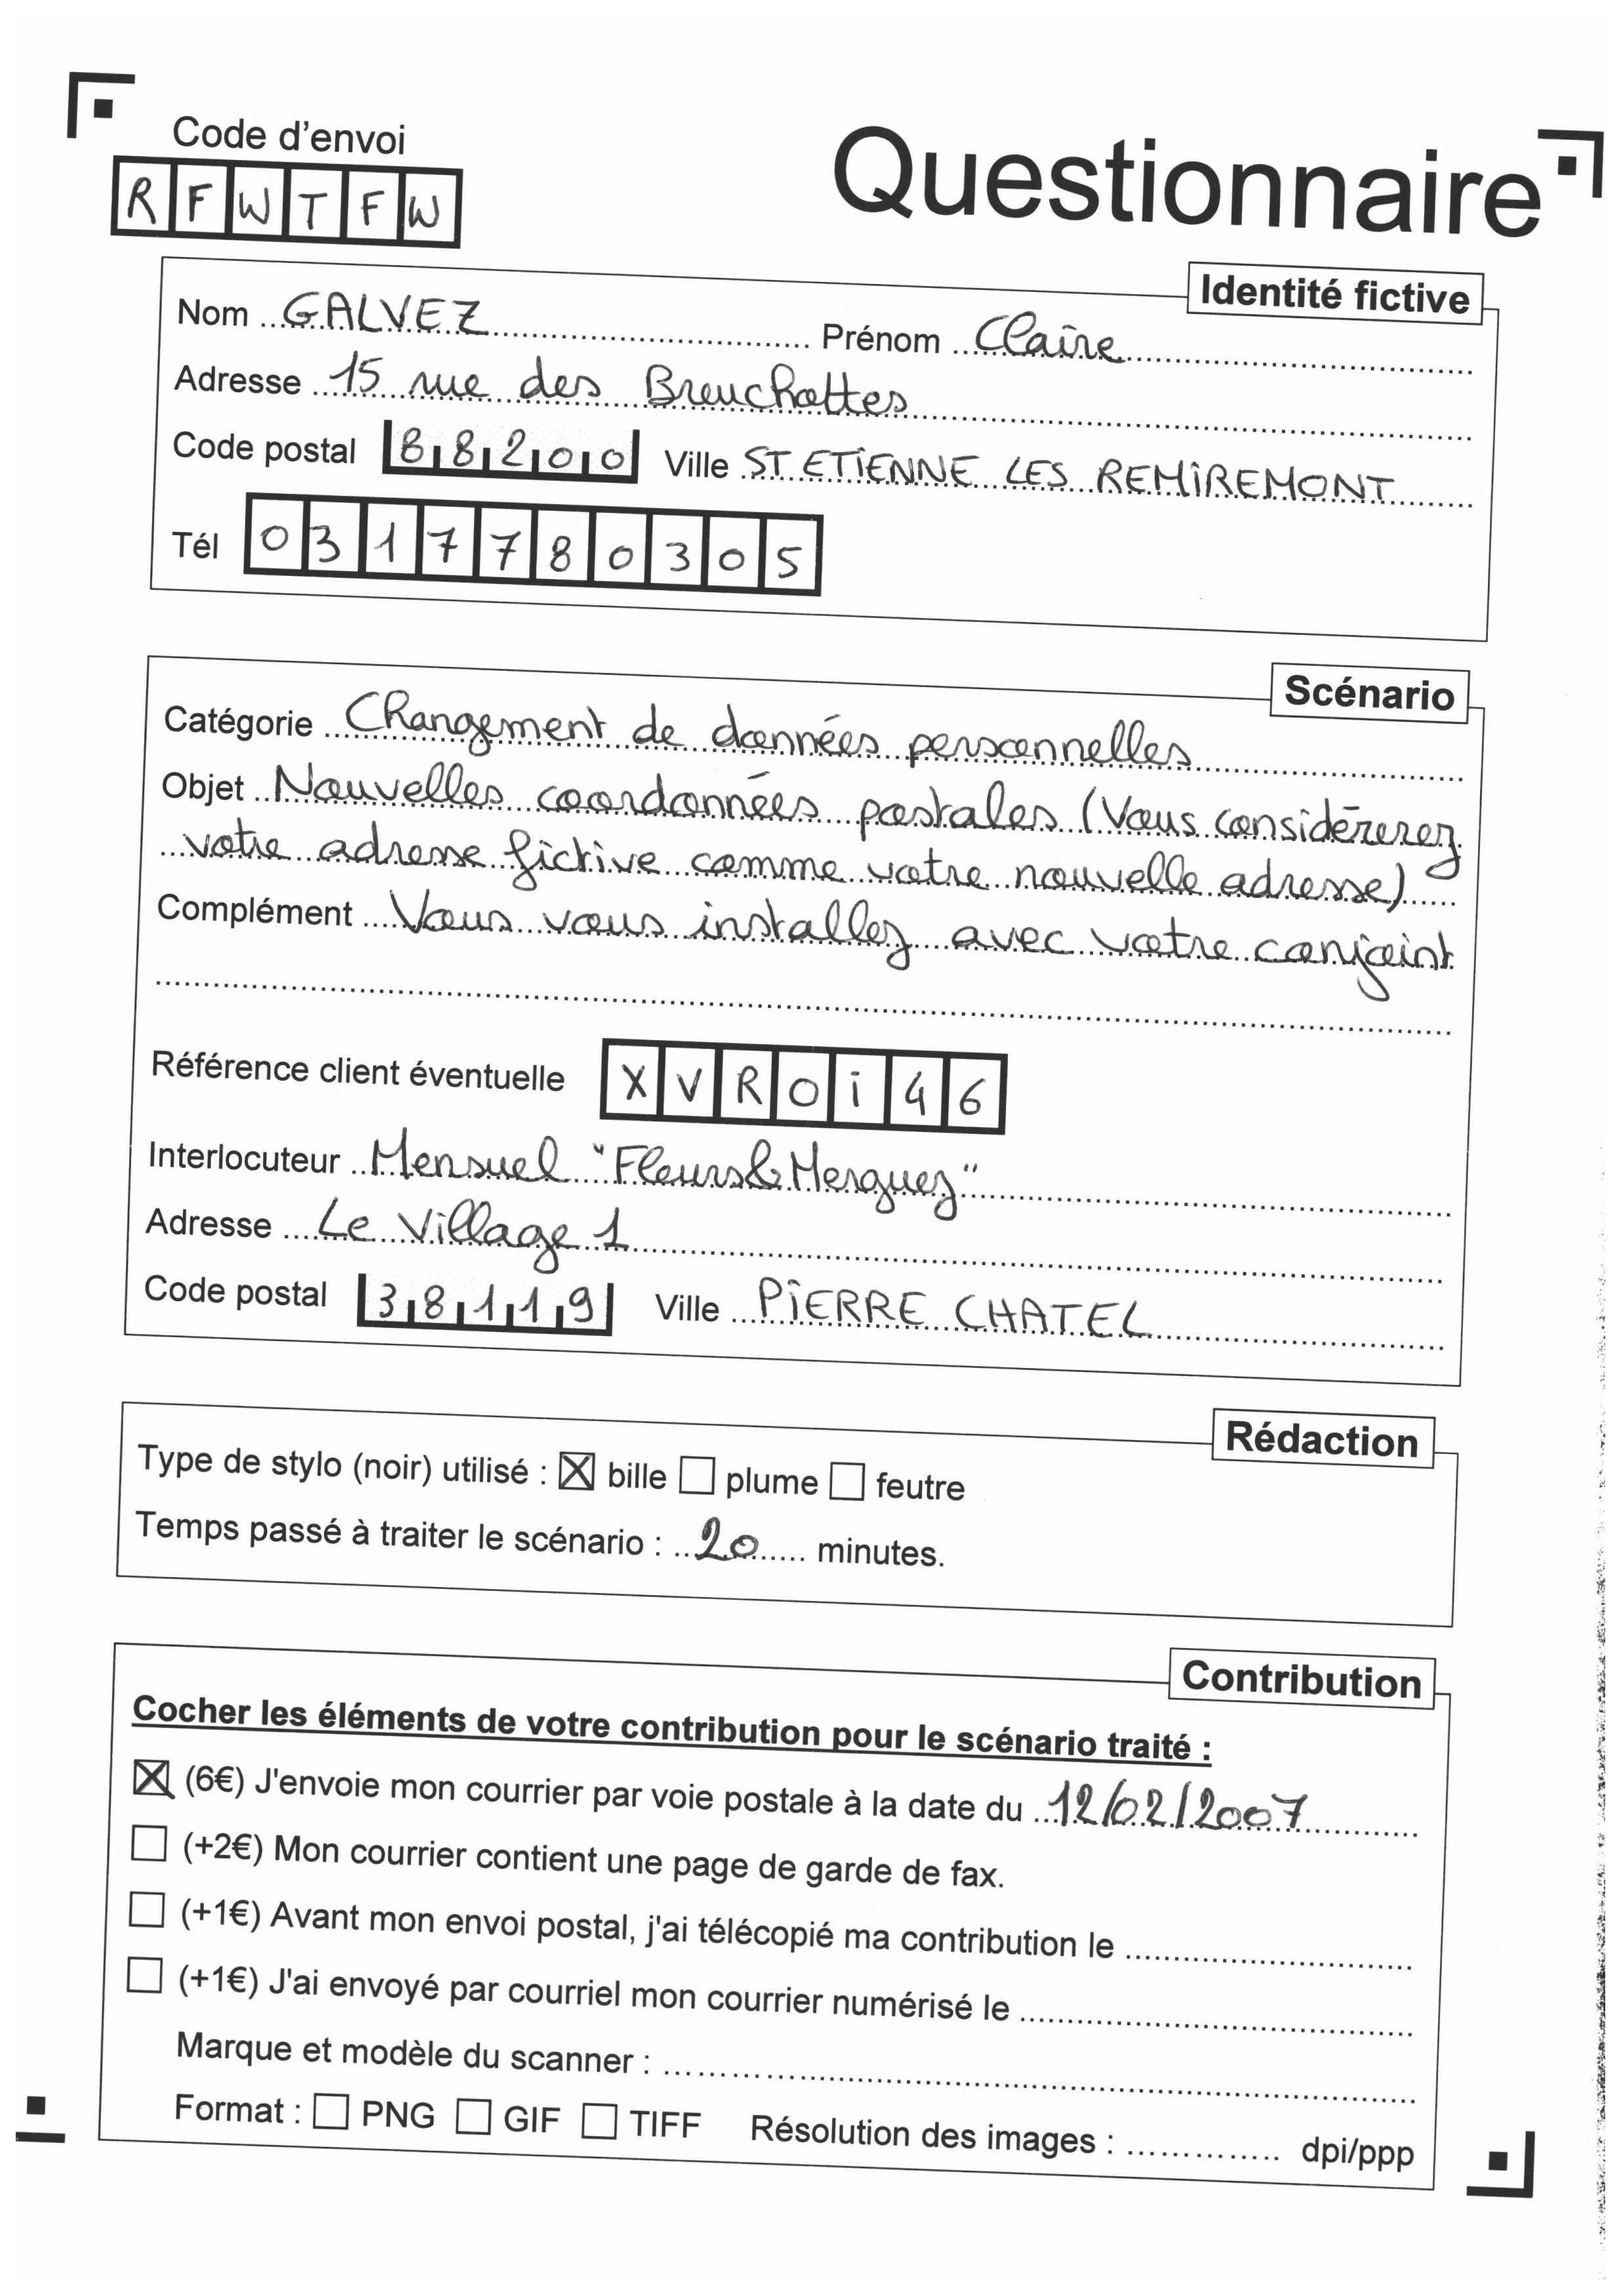 Code d'envoi
RFWTFW
Questionnaire
Identité fictive
Nom GALVEZ Prénom Claire
Adresse 15 rue des Breuchottes
Code postal 88200 Ville ST ETIENNE LES REMIREMONT
Tél 0317780305
Scénario
Catégorie Changement de données personnelles
Objet Nouvelles coordonnées postales (Vous considérerez
votre adresse fictive comme votre nouvelle adresse)
Complément Vous vous installez avec votre conjoint
Référence client éventuelle XVROI46
Interlocuteur Mensuel "Fleurs & Merguez"
Adresse Le Village 1
Code postal 38119 Ville PIERRE CHATEL
Rédaction
Type de stylo (noir) utilisé : ☒ bille ☐ plume ☐ feutre
Temps passé à traiter le scénario : 20 minutes.
Contribution
Cocher les éléments de votre contribution pour le scénario traité :
☒ (6€) J'envoie mon courrier par voie postale à la date du 12/02/2007
☐ (+2€) Mon courrier contient une page de garde de fax.
☐ (+1€) Avant mon envoi postal, j'ai télécopié ma contribution le
☐ (+1€) J'ai envoyé par courriel mon courrier numérisé le
Marque et modèle du scanner :
Format : ☐ PNG ☐ GIF ☐ TIFF Résolution des images : dpi/ppp